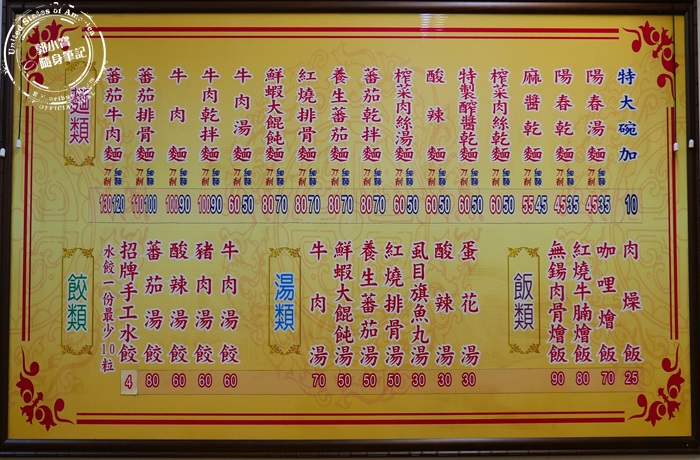 United States of America
郭小寶
隨身筆記
OFFICIAL
麵類
蕃茄牛肉麵 130 120
蕃茄排骨麵 110 100
牛肉麵 100 90
牛肉乾拌麵 100 90
牛肉湯麵 60 50
鮮蝦大餛飩麵 80 70
紅燒排骨麵 80 70
養生蕃茄麵 80 70
蕃茄乾拌麵 80 70
榨菜肉絲湯麵 60 50
酸辣麵 60 50
特製醡醬乾麵 60 50
榨菜肉絲乾麵 60 50
麻醬乾麵 55 45
陽春乾麵 45 35
陽春湯麵 45 35
特大碗加 10
餃類
水餃一份最少10粒
招牌手工水餃 4
蕃茄湯餃 80
酸辣湯餃 60
豬肉湯餃 60
牛肉湯餃 60
湯類
牛肉湯 70
鮮蝦大餛飩湯 50
養生蕃茄湯 50
紅燒排骨湯 50
虱目旗魚丸湯 30
酸辣湯 30
蛋花湯 30
飯類
無錫肉骨燴飯 90
紅燒牛腩燴飯 80
咖哩燴飯 70
肉燥飯 25